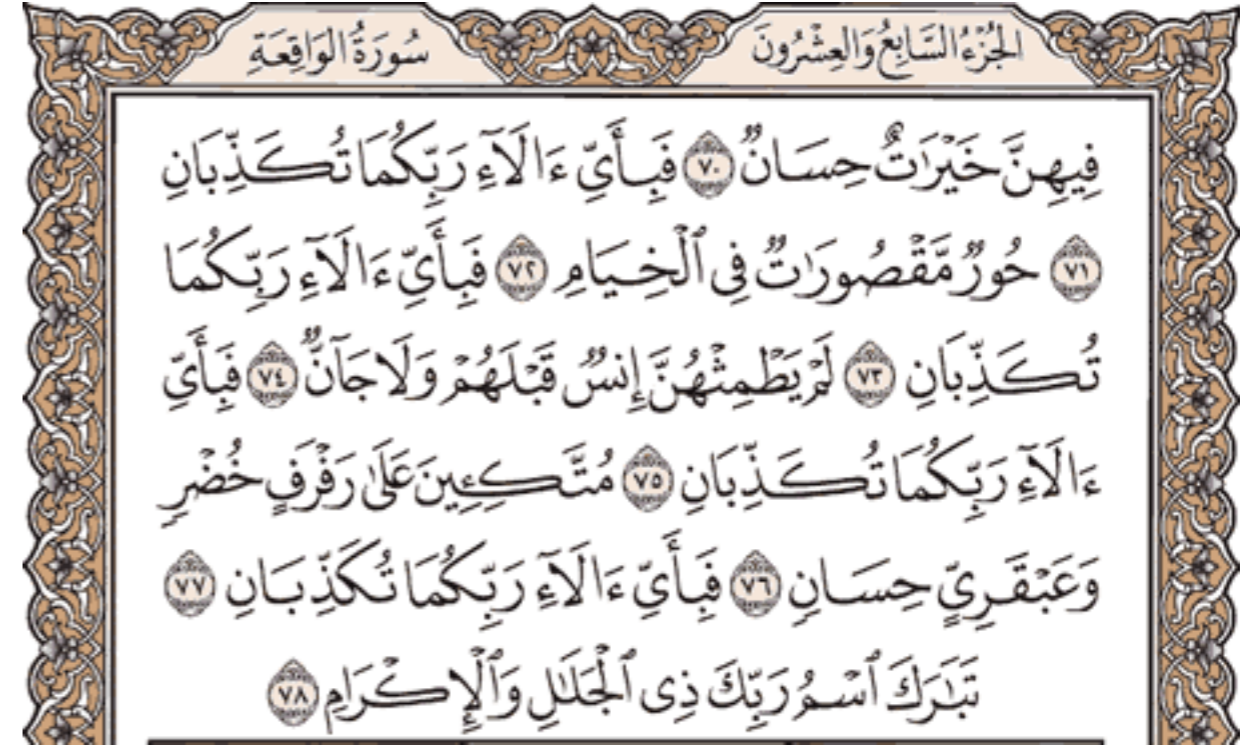 الجُزْءُ السَّابِعُ وَالعِشْرُونَ
سُورَةُ الوَاقِعَةِ
فِيهِنَّ خَيْرَٰتٌ حِسَانٌ ٧٠ فَبِأَيِّ ءَالَآءِ رَبِّكُمَا تُكَذِّبَانِ
٧١ حُورٌ مَّقْصُورَٰتٌ فِى ٱلْخِيَامِ ٧٢ فَبِأَيِّ ءَالَآءِ رَبِّكُمَا
تُكَذِّبَانِ ٧٣ لَمْ يَطْمِثْهُنَّ إِنسٌ قَبْلَهُمْ وَلَا جَآنٌّ ٧٤ فَبِأَيِّ
ءَالَآءِ رَبِّكُمَا تُكَذِّبَانِ ٧٥ مُتَّكِـِٔينَ عَلَىٰ رَفْرَفٍ خُضْرٍ
وَعَبْقَرِيٍّ حِسَانٍ ٧٦ فَبِأَيِّ ءَالَآءِ رَبِّكُمَا تُكَذِّبَانِ ٧٧
تَبَٰرَكَ ٱسْمُ رَبِّكَ ذِى ٱلْجَلَٰلِ وَٱلْإِكْرَامِ ٧٨